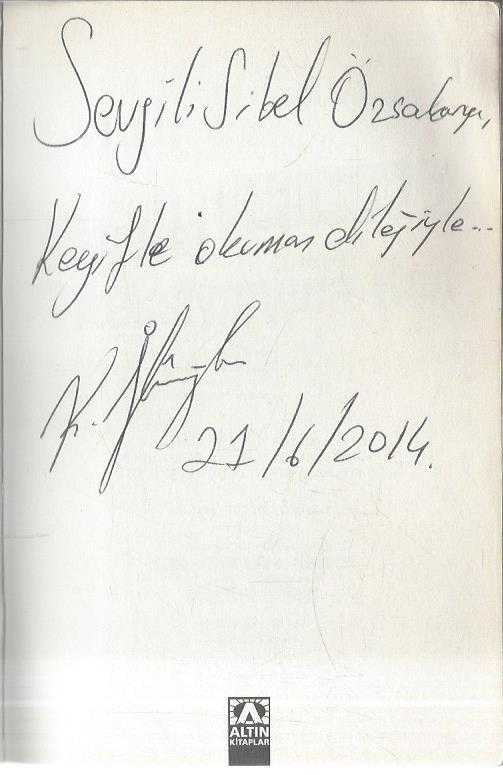 Sevgili Sibel Özsakarya,
Keyifle okuman dileğiyle...
K.
21/6/2014.
ALTIN
KİTAPLAR